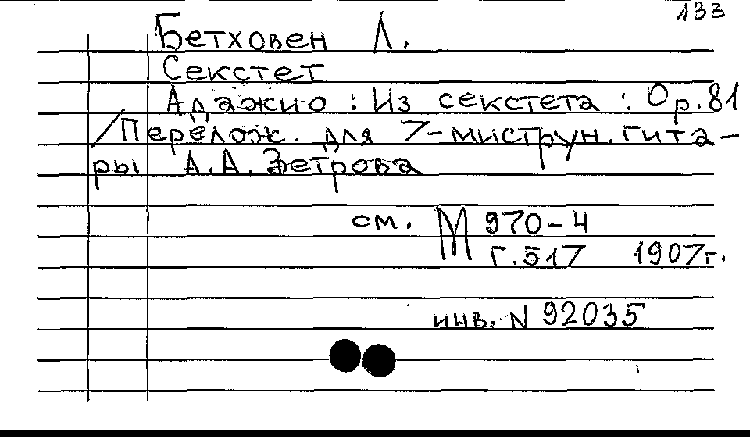 133
Бетховен Л.
Секстет
Адажио : Из секстета : Ор.81
/Перелож. для 7-миструн. гита-
ры А.А. Ветрова
см. М 970-4
Г.517 1907г.
инв. N 92035